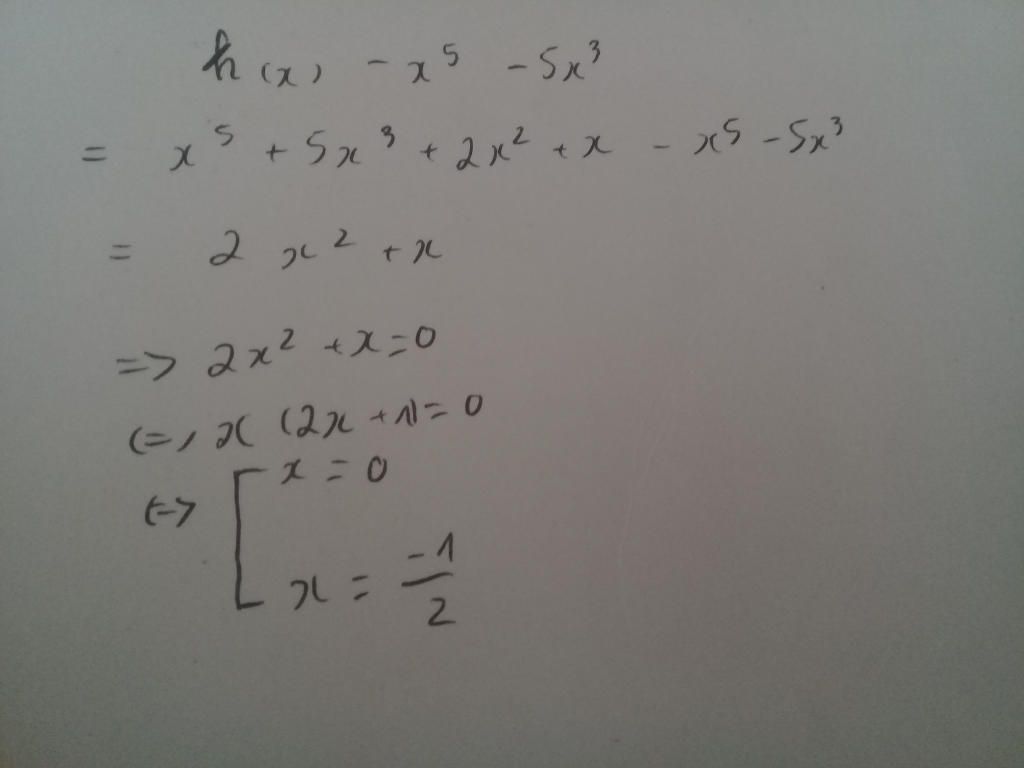 h(x) - x⁵ - 5x³
= x⁵ + 5x³ + 2x² + x - x⁵ - 5x³
= 2x² + x
=> 2x² + x = 0
<=> x (2x + 1) = 0
<=> [ x = 0
x = -1/2